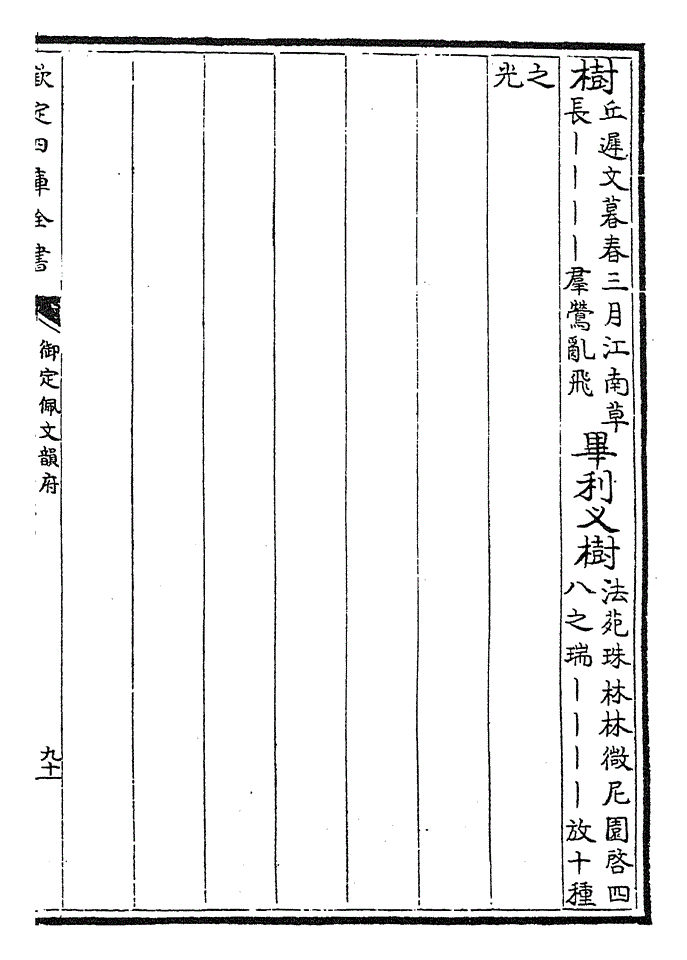 樹丘遲文暮春三月江南草
長丨丨丨丨羣鶯亂飛
畢利义樹法苑珠林林微尼園啓四
八之瑞丨丨丨丨放十種
之
光
欽定四庫全書
御定佩文韻府
九十